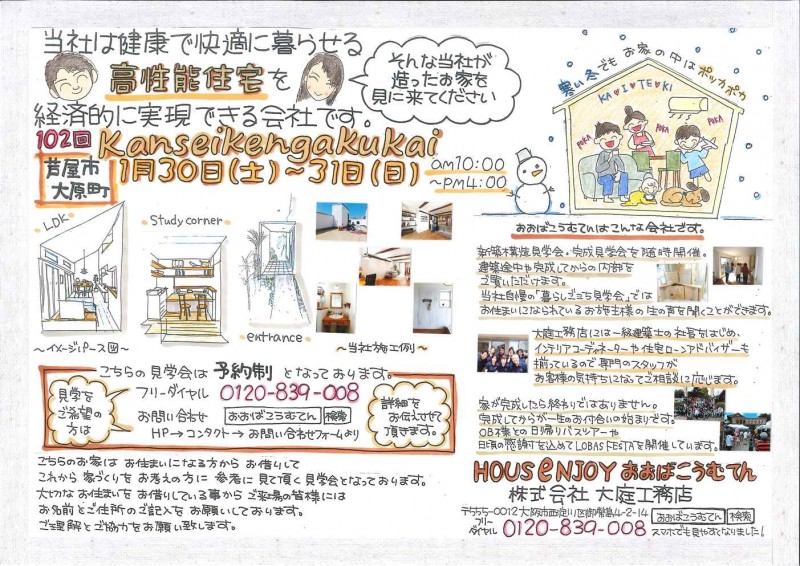 当社は健康で快適に暮らせる
高性能住宅を
経済的に実現できる会社です。
そんな当社が
造ったお家を
見に来てください
102回
Kanseikengakukai
芦屋市
大原町
1月30日(土)～31日(日)
am10:00
～pm4:00
LDK
Study corner
entrance
～イメージパース図～
～当社施工例～
寒い冬でもお家の中はポッカポカ
KA・I・TE・KI
POKA
POKA
POKA
おおばこうむてんはこんな会社です。
新築構造見学会・完成見学会を随時開催。
建築途中や完成してからの内部を
ご覧いただけます。
当社自慢の「暮らしごこち見学会」では
お住まいになられているお客主様の生の声を聞くことができます。
大庭工務店には一級建築士の社長をはじめ、
インテリアコーディネーターや住宅ローンアドバイザーも
揃っているので専門のスタッフが
お客様の気持ちになってご相談に応じます。
家が完成したら終わりではありません。
完成してからが一生のお付合いの始まりです。
OB様との日帰りバスツアーや
日頃の感謝を込めてLOBAS FESTAを開催しています。
見学を
ご希望の
方は
こちらの見学会は予約制となっております。
フリーダイヤル 0120-839-008
お問い合わせ おおばこうむてん 検索
HP→コンタクト→お問い合わせフォームより
詳細を
お伝えさせて
頂きます。
こちらのお家はお住まいになる方からお借りして
これから家づくりをお考えの方に参考に見て頂く見学会となっております。
大切なお住まいをお借りしている事からご来場の皆様には
お名前とご住所のご記入をお願いしております。
ご理解とご協力をお願い致します。
HOUSeNJOY おおばこうむてん
株式会社 大庭工務店
〒555-0012大阪市西淀川区御幣島4-2-14 おおばこうむてん 検索
フリー
ダイヤル 0120-839-008 スマホでも見やすくなりました!